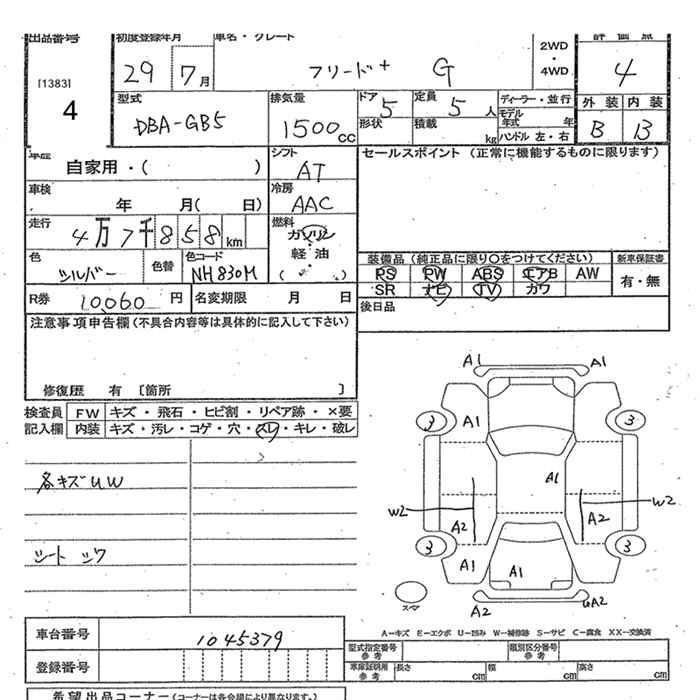 出品番号 初度登録年月 車名・グレード 評価点
[1383] 4
29 7月 フリード+ G 2WD・4WD 4
型式 DBA-GB5 排気量 1500cc ドア 5 形状 定員 5人 積載 kg ディーラー・並行 モデル年式 年 ハンドル 左・右 外装 B 内装 B
車歴 自家用・( ) シフト AT セールスポイント (正常に機能するものに限ります)
車検 年 月( 日) 冷房 AAC
走行 4万7千858km 燃料 ガソリン 軽油 ( )
色 シルバー 色替 色コード NH830M
装備品 (純正品に限り○をつけてください) 新車保証書
PS PW ABS エアB AW 有・無
SR ナビ TV カワ
R券 10,060円 名変期限 月 日 後日品
注意事項申告欄(不具合内容等は具体的に記入して下さい)
修復歴 有 [箇所 ]
検査員 FW キズ・飛石・ヒビ割・リペア跡・×要
記入欄 内装 キズ・汚レ・コゲ・穴・スレ・キレ・破レ
各キズUW
シート シワ
A1 A1
3 A1 3
A1
W2 A2 A2 W2
3 3
A1 A1
スペア A2 UA2
A-キズ E-エクボ U-凹み W-補修跡 S-サビ C-腐食 XX-交換済
車台番号 1045379
型式指定番号 参考 類別区分番号 参考
登録番号
車庫証明用 参考 長さ cm 幅 cm 高さ cm
希望出品コーナー (コーナーは各会場により異なります。)